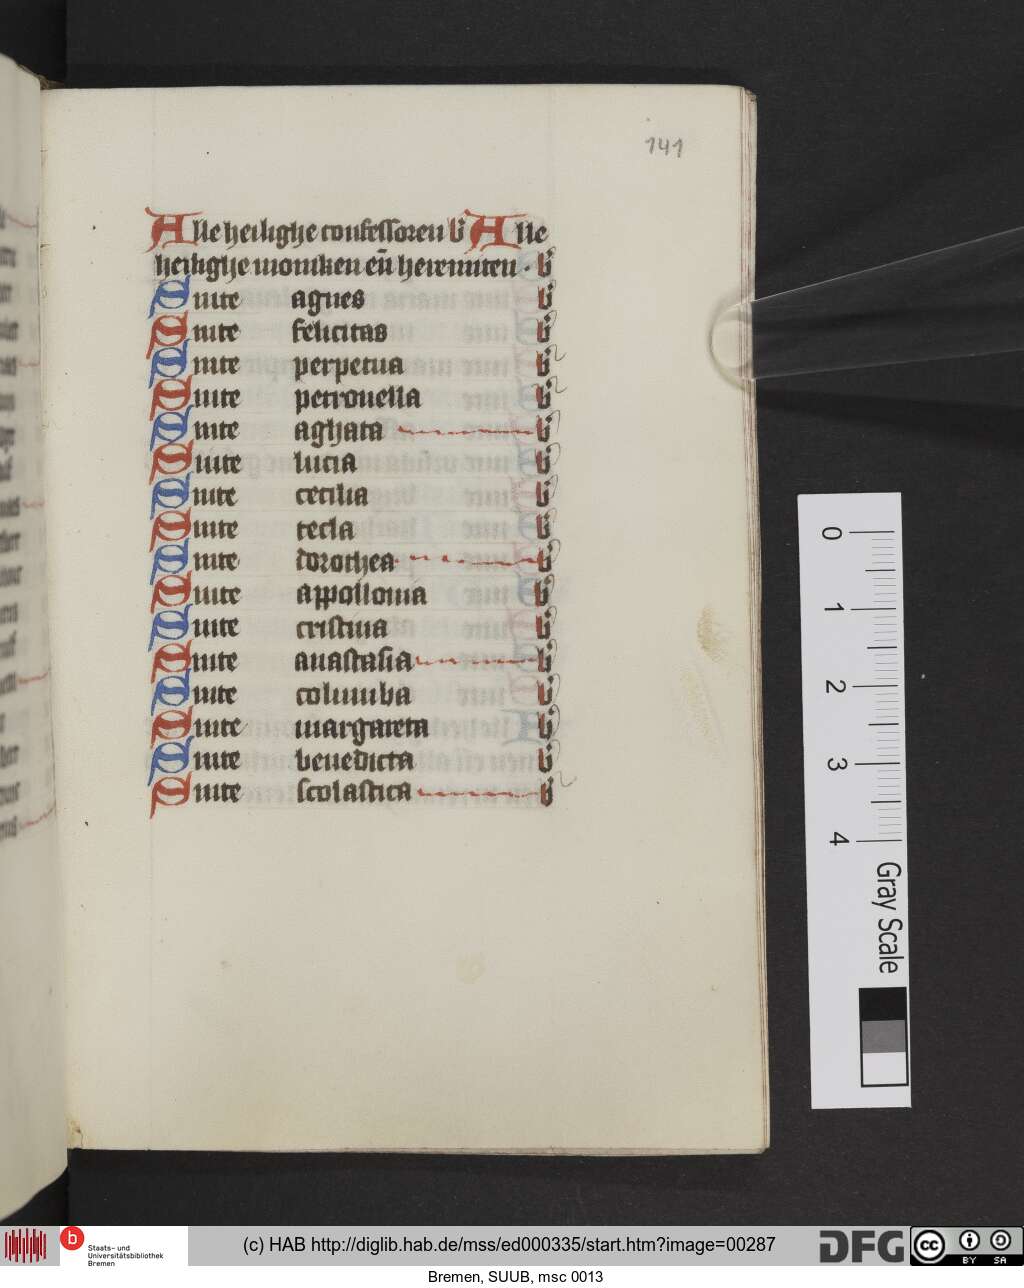 141
Alle heilighe confessoren b̅ Alle
heilighe moniken en̅ heremiten · b̅
Sinte agnes b̅
Sinte felicitas b̅
Sinte perpetua b̅
Sinte petronella b̅
Sinte aghata b̅
Sinte lucia b̅
Sinte cecilia b̅
Sinte tecla b̅
Sinte dorothea b̅
Sinte appollonia b̅
Sinte cristina b̅
Sinte anastasia b̅
Sinte columba b̅
Sinte margareta b̅
Sinte benedicta b̅
Sinte scolastica b̅
0
1
2
3
4
Gray Scale
b Staats- und
Universitätsbibliothek
Bremen
(c) HAB http://diglib.hab.de/mss/ed000335/start.htm?image=00287
DFG
cc BY SA
Bremen, SUUB, msc 0013